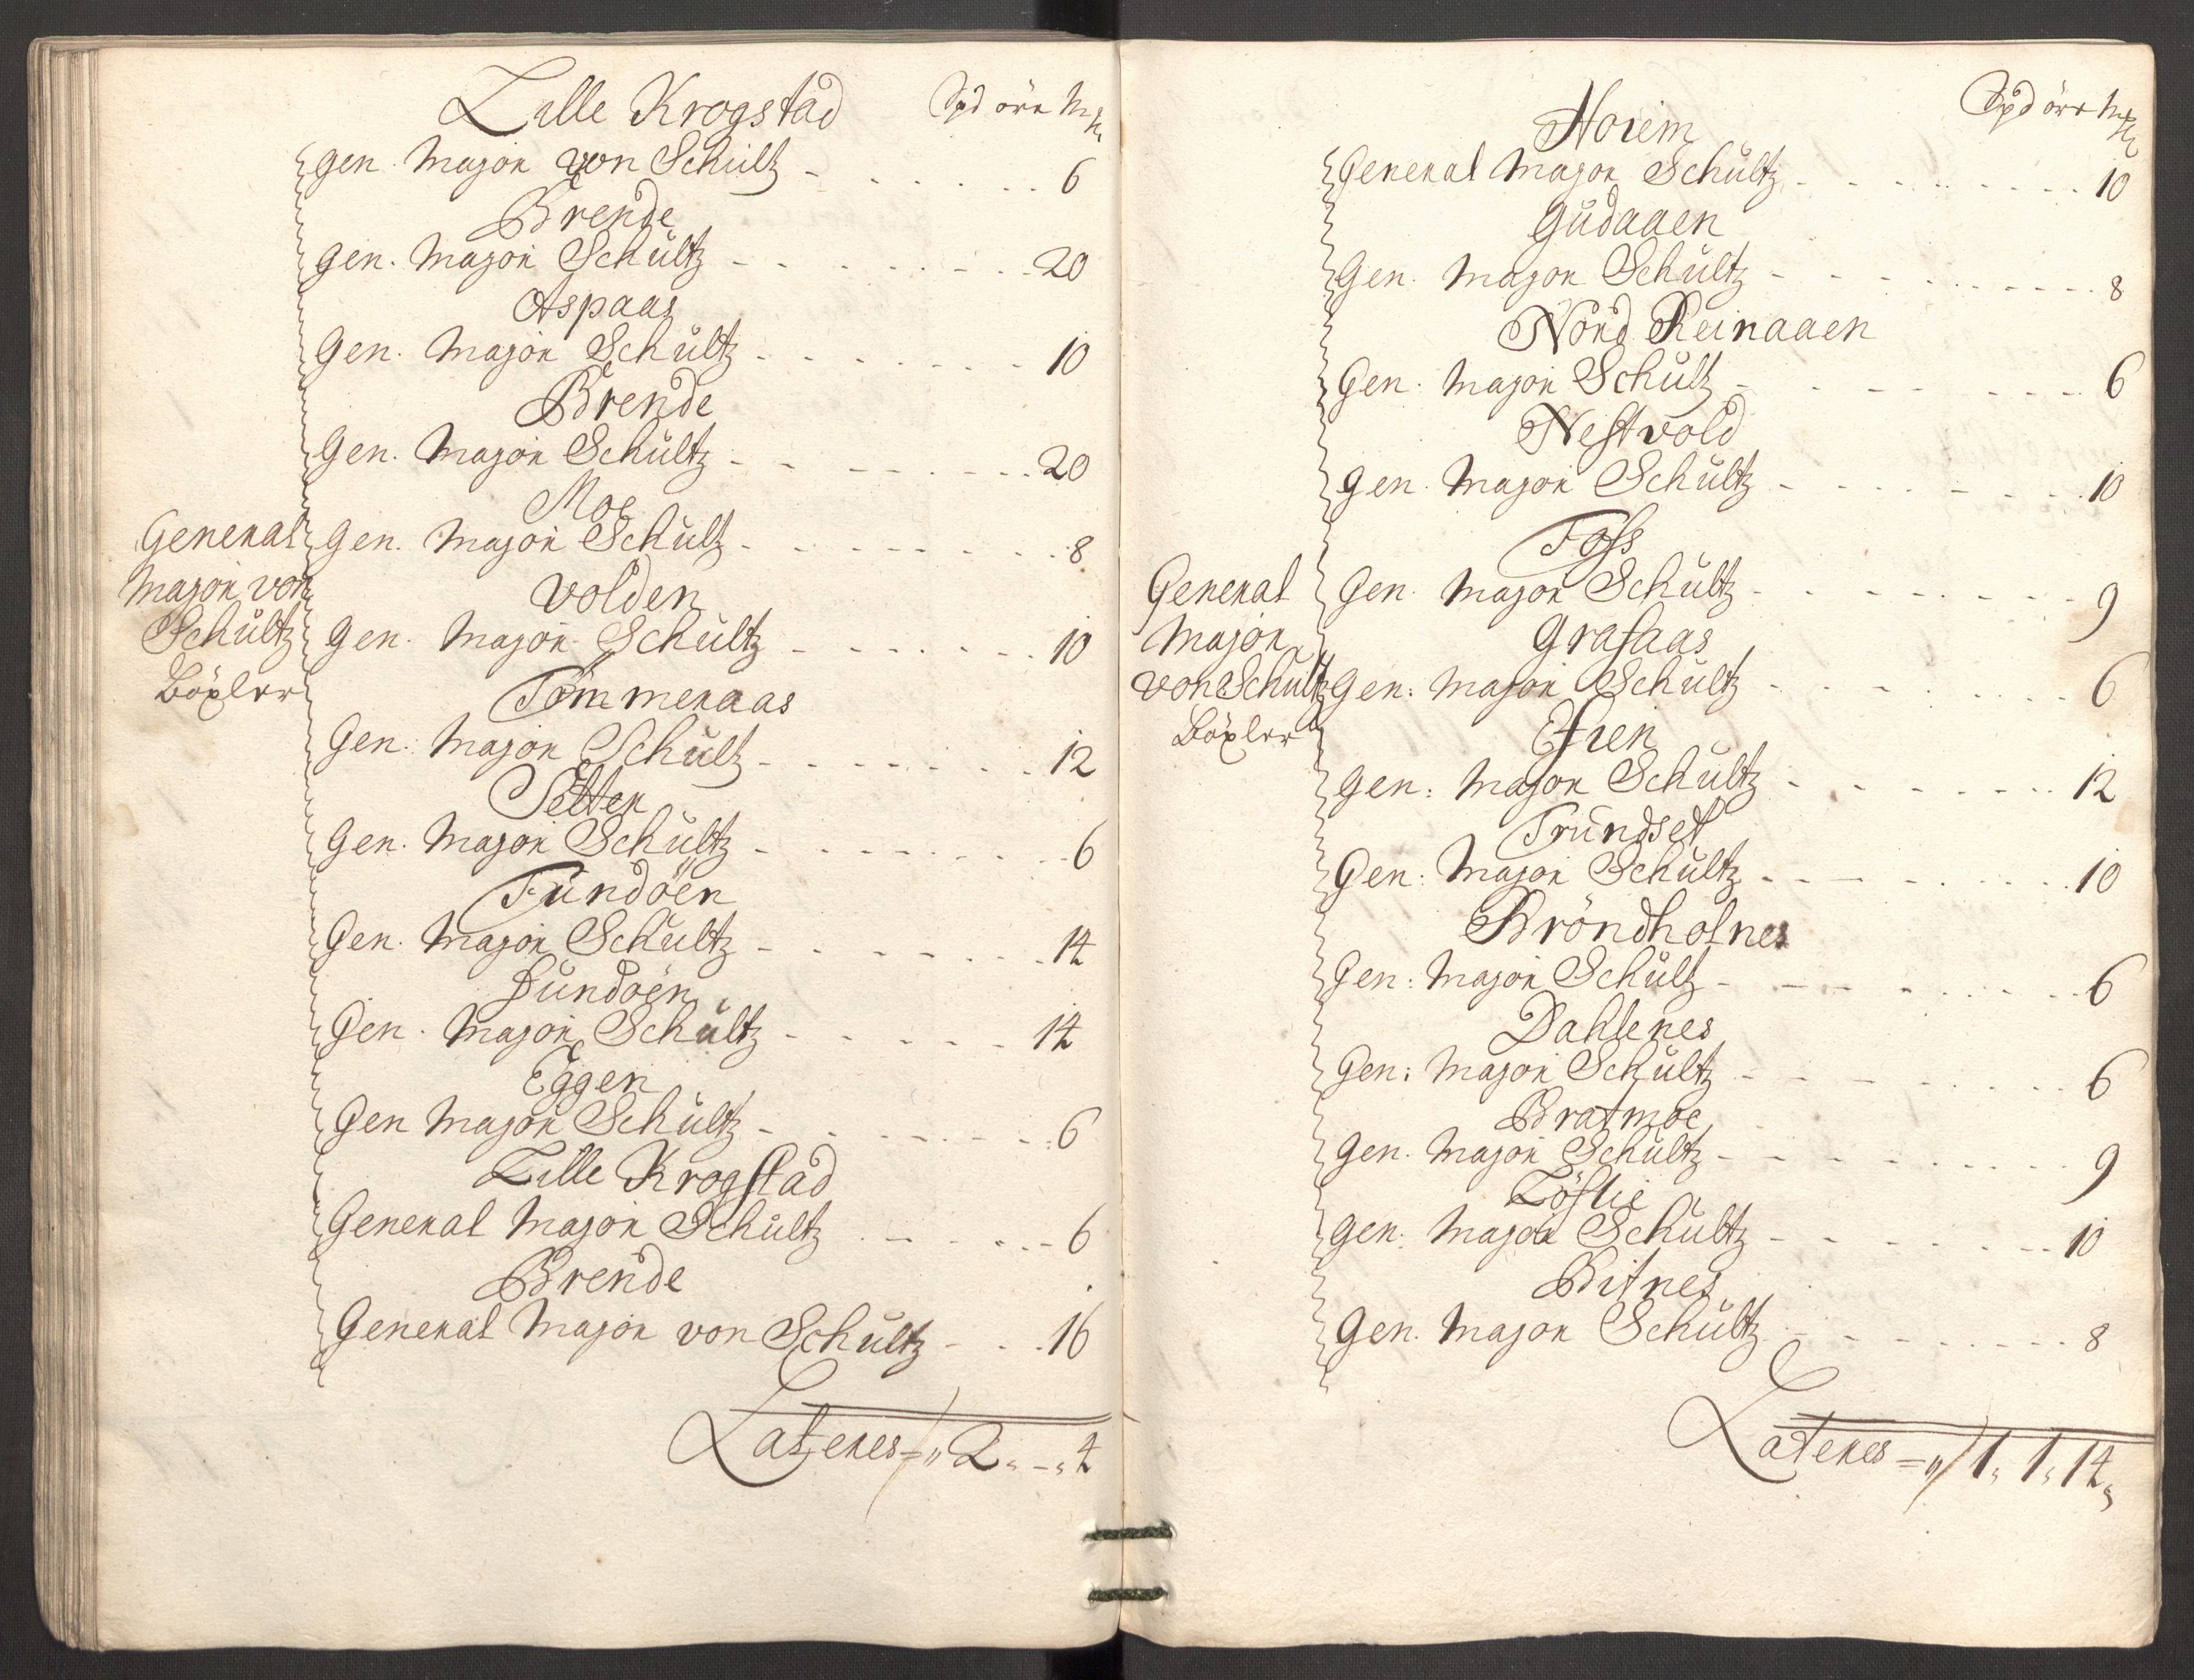 Lille Krogstad Spd öre Mk
Gen. Major von Schultz - - - - - 6
Brende
Gen. Major Schultz - - - - - 20
Aspaas
Gen. Major Schultz - - - - - 10
Brende
Gen. Major Schultz - - - - - 20
Moe
Gen. Major Schultz - - - - - 8
Volden
Gen. Major Schultz - - - - - 10
Tömmeraas
Gen. Major Schultz - - - - - 12
Sætter
Gen. Major Schultz - - - - - 6
Fundöen
Gen. Major Schultz - - - - - 14
Sundöen
Gen. Major Schultz - - - - - 14
Eggen
Gen Major Schultz - - - - - 6
Lille Krogstad
General Major Schultz - - - - - 6
Brende
General Major von Schultz - - - 16
General
Major von
Schultz
Böxler
Lateres = " 2 " - " 4
Horem Spd ört Mk
General Major Schultz - - - - - 10
Gudaaen
Gen. Major Schultz - - - - - 8
Nord Reinaaen
Gen. Major Schultz - - - - - 6
Nestvold
Gen. Major Schultz - - - - - 10
Foss
Gen. Major Schultz - - - - - 9
Grafaas
Gen: Major Schultz - - - - - 6
Gen: Major Schultz - - - - - 12
Trundset
Gen: Major Schultz - - - - - 10
Bröndholnes
Gen: Major Schultz - - - - - 6
Dahlenes
Gen: Major Schultz - - - - - 6
Bratmoe
Gen. Major Schultz - - - - - 9
Löflie
Gen: Major Schultz - - - - - 10
Bitnes
Gen. Major Schultz - - - - - 8
General
Major
von Schultz
Böxler
Lateres = " 1 " 1 " 14 "